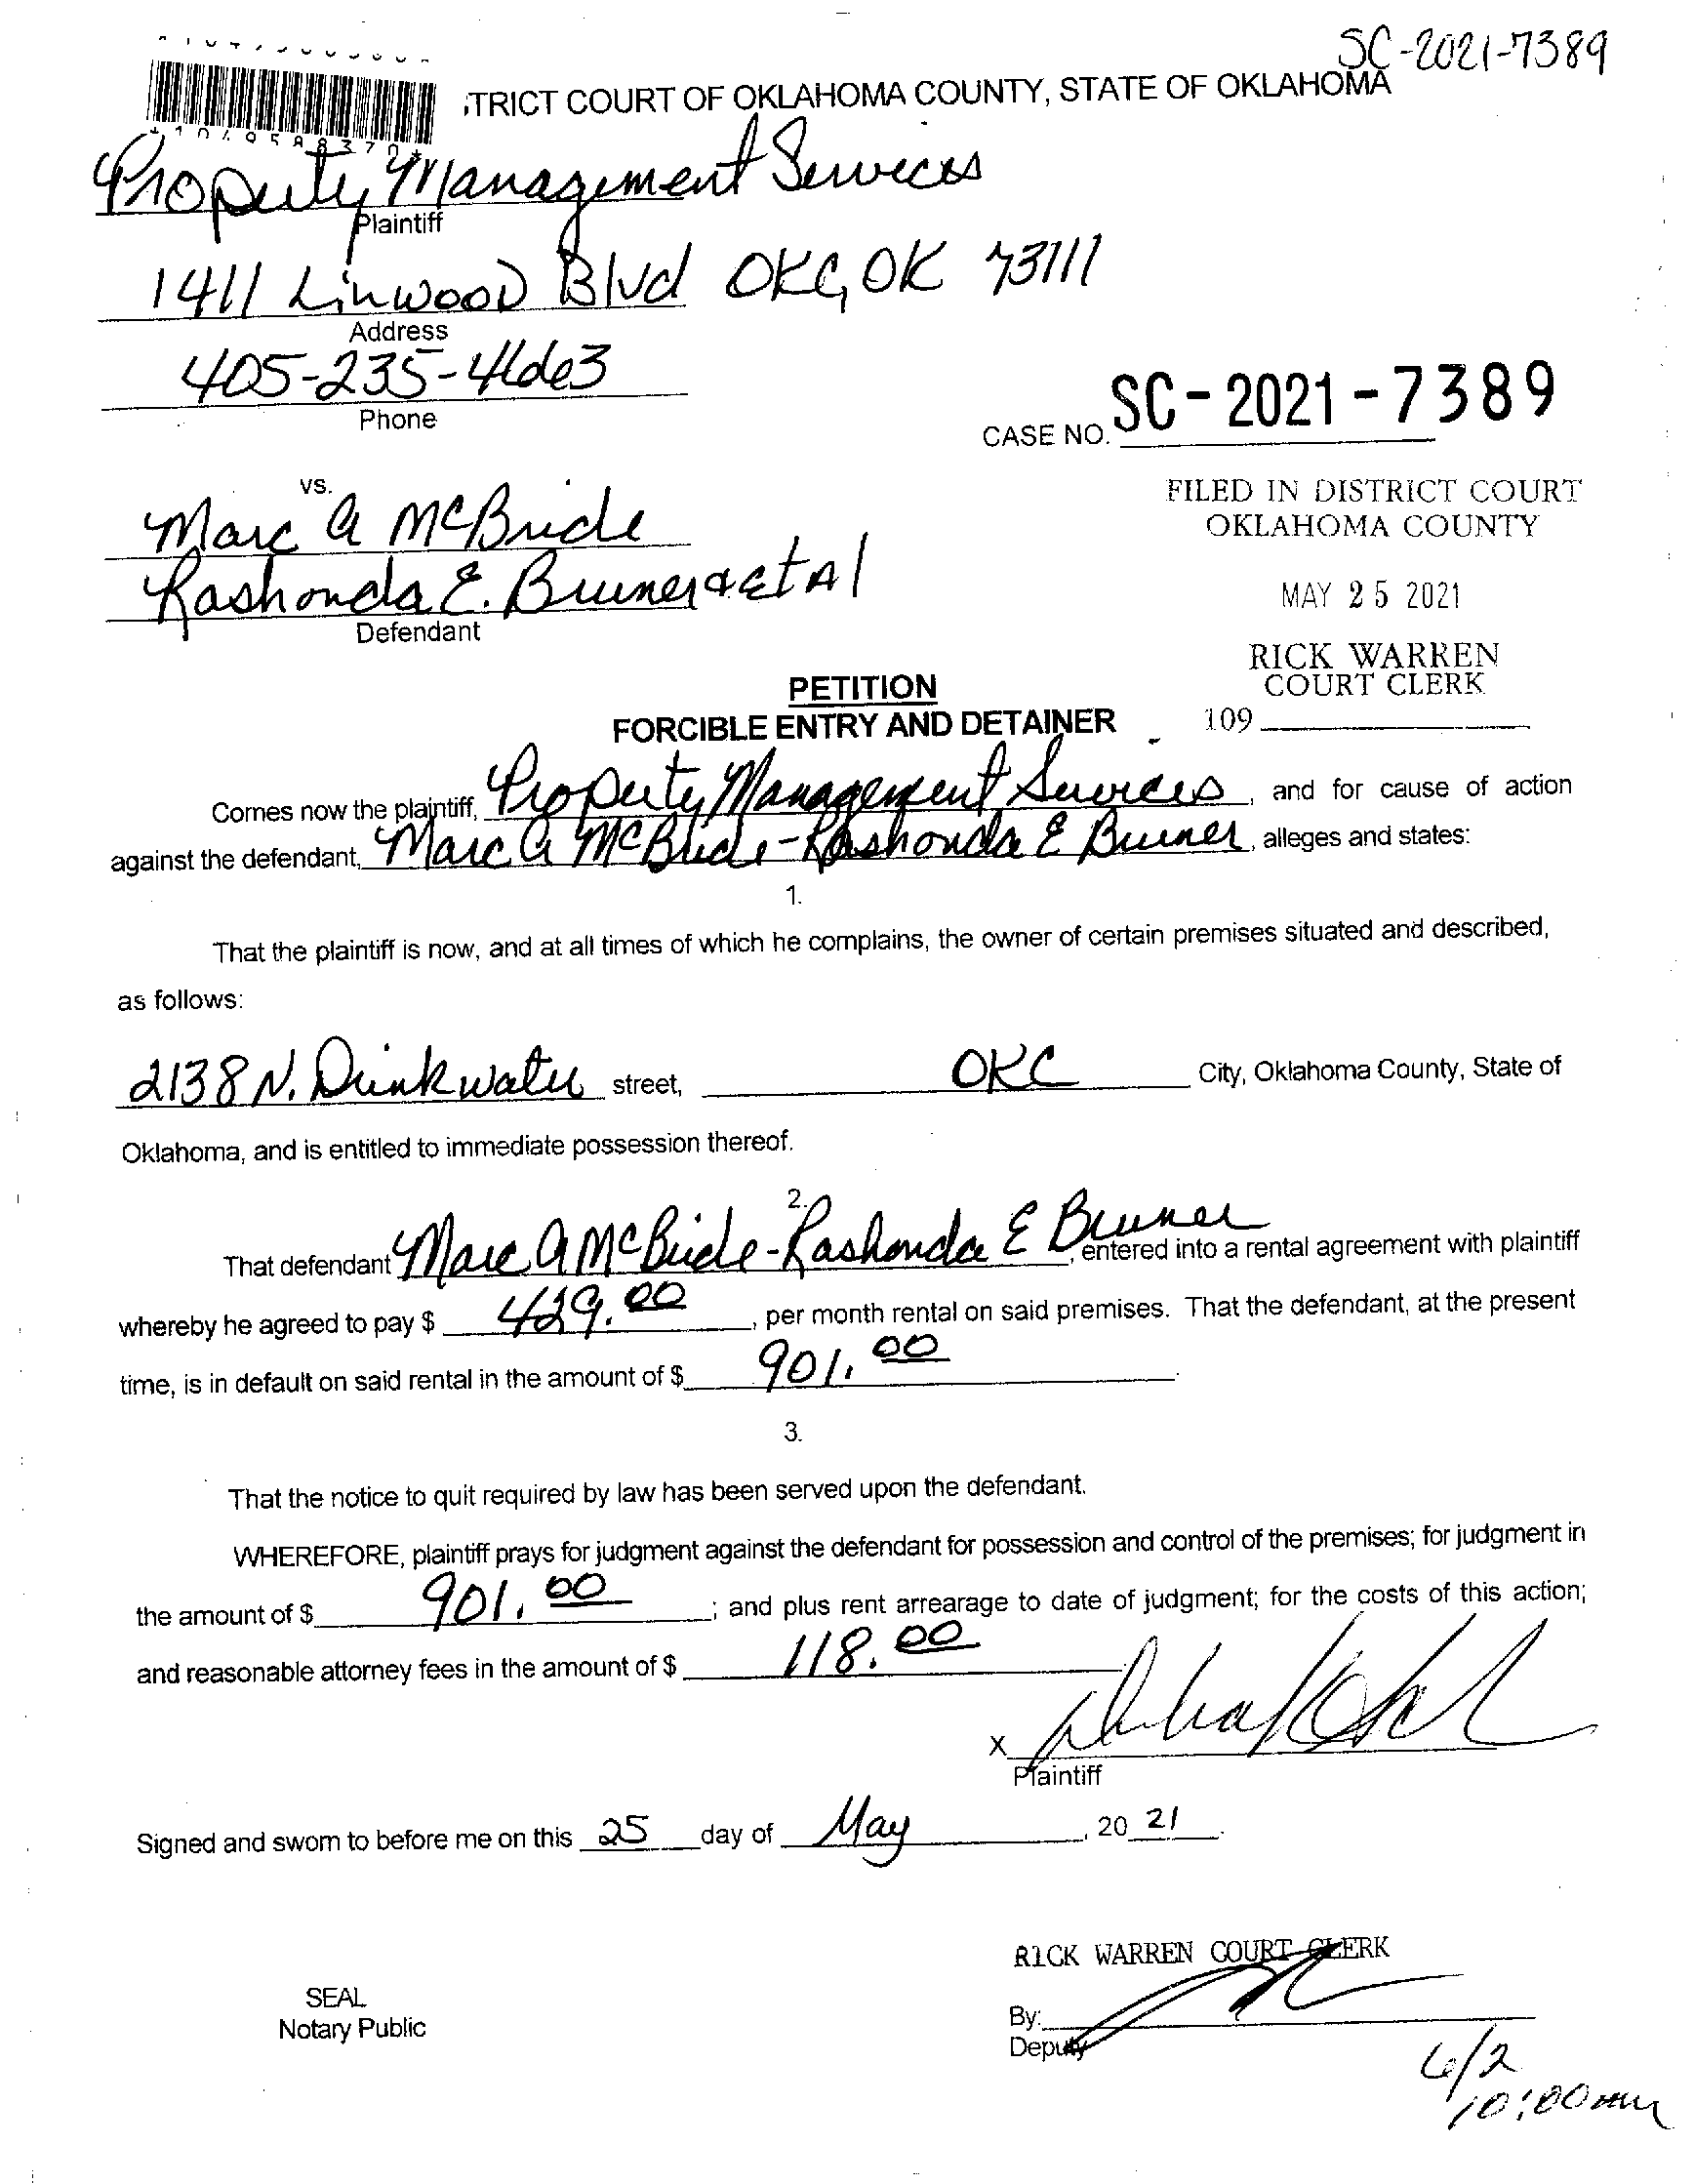 SC-2021-7389
TRICT COURT OF OKLAHOMA COUNTY, STATE OF OKLAHOMA
Property Management Services
Plaintiff
1411 Linwood Blvd OKC, OK 73111
Address
405-235-4663
Phone
CASE NO. SC-2021-7389
vs.
Marc A McBride
Rashonda E. Bruner & et Al
Defendant
FILED IN DISTRICT COURT
OKLAHOMA COUNTY
MAY 25 2021
RICK WARREN
COURT CLERK
109
PETITION
FORCIBLE ENTRY AND DETAINER
Comes now the plaintiff, Property Management Services, and for cause of action
against the defendant, Marc A McBride-Rashonda E Bruner, alleges and states:
1.
That the plaintiff is now, and at all times of which he complains, the owner of certain premises situated and described,
as follows:
2138 N. Drinkwater street, OKC City, Oklahoma County, State of
Oklahoma, and is entitled to immediate possession thereof.
2.
That defendant Marc A McBride-Rashonda E Bruner, entered into a rental agreement with plaintiff
whereby he agreed to pay $ 429.00, per month rental on said premises. That the defendant, at the present
time, is in default on said rental in the amount of $ 901.00.
3.
That the notice to quit required by law has been served upon the defendant.
WHEREFORE, plaintiff prays for judgment against the defendant for possession and control of the premises; for judgment in
the amount of $ 901.00; and plus rent arrearage to date of judgment; for the costs of this action;
and reasonable attorney fees in the amount of $ 118.00
X
Plaintiff
Signed and sworn to before me on this 25 day of May, 20 21.
RICK WARREN COURT CLERK
SEAL
Notary Public
By:
Deputy
6/2
10:00am